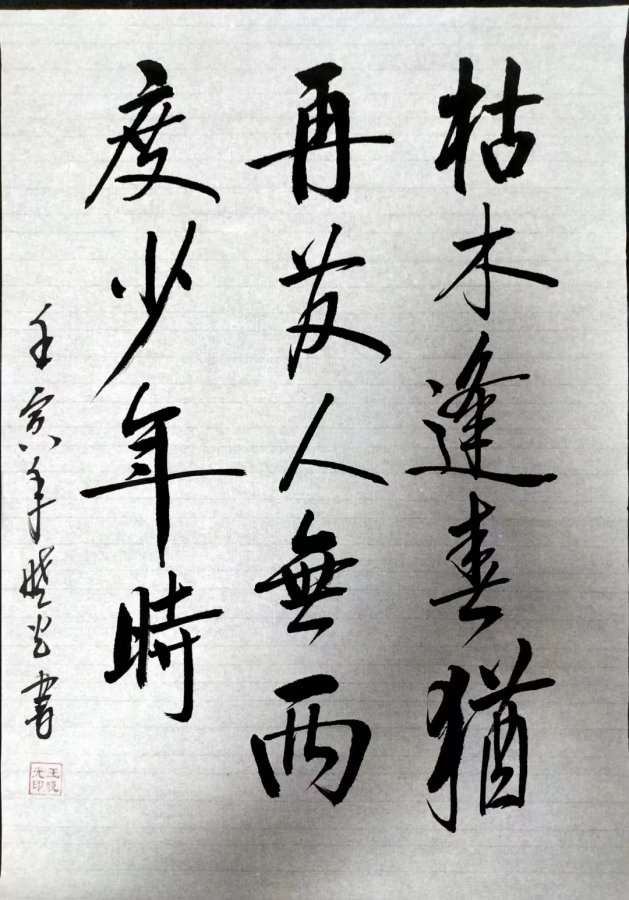 枯木逢春猶
再发人無两
度少年時
壬寅年晓光書
王晓光印